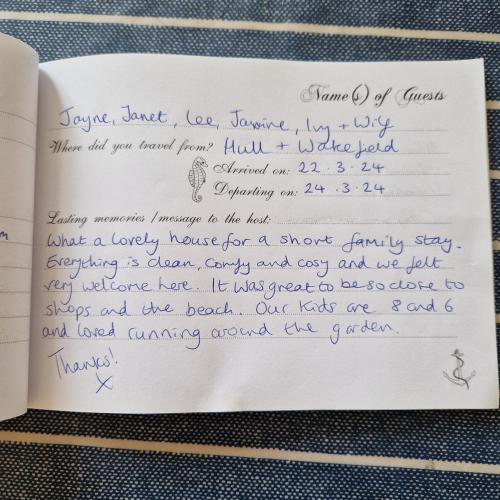 Name(s) of Guests
Jayne, Janet, Lee, Jasmine, Ivy + Wilf
Where did you travel from? Hull + Wakefield
Arrived on: 22.3.24
Departing on: 24.3.24
Lasting memories / message to the host:
What a lovely house for a short family stay.
Everything is clean, comfy and cosy and we felt
very welcome here. It was great to be so close to
shops and the beach. Our kids are 8 and 6
and loved running around the garden.
Thanks!
X